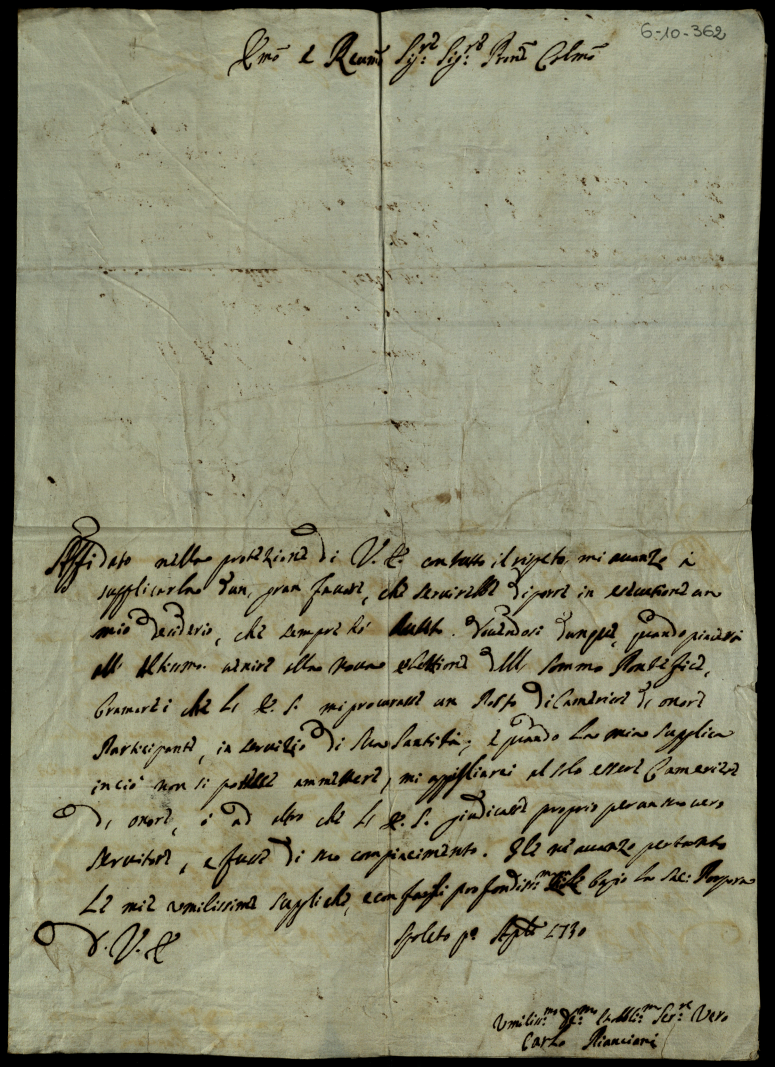 6-10-362
Emo e Revmo Sigre Sigre Prone Colmo
Affidato nella protezione di V. E. con tutto il rispetto mi avanzo a
supplicarla d'un gran favore, che servirebbe di porre in esecutione un
mio desiderio, che sempre hò hauto. Dovendosi dunque, quando piacerà
all' Altissmo venire alla nova elettione dell Sommo Pontefice,
bramerei che L' E. S. mi procurasse un Posto di Camerier d' onore
Participante, in servizio di Sua Santità; e quando la mia supplica
in ciò non si potesse ammettere, mi appigliarei al solo essere Cameriere
d' onore, ò ad altro che L' E. S. giudicasse proprio per un suo vero
servitore, e fusse di suo compiacimento. Gle ne avanzo pertanto
le mie umilissime suppliche, e con farsi profondissmte bagio la Sac: Porpora
D. V. E
Spoleto po Aple 1730
Umilissmo Demo Obblmo Serre Vero
Carlo Pianciani